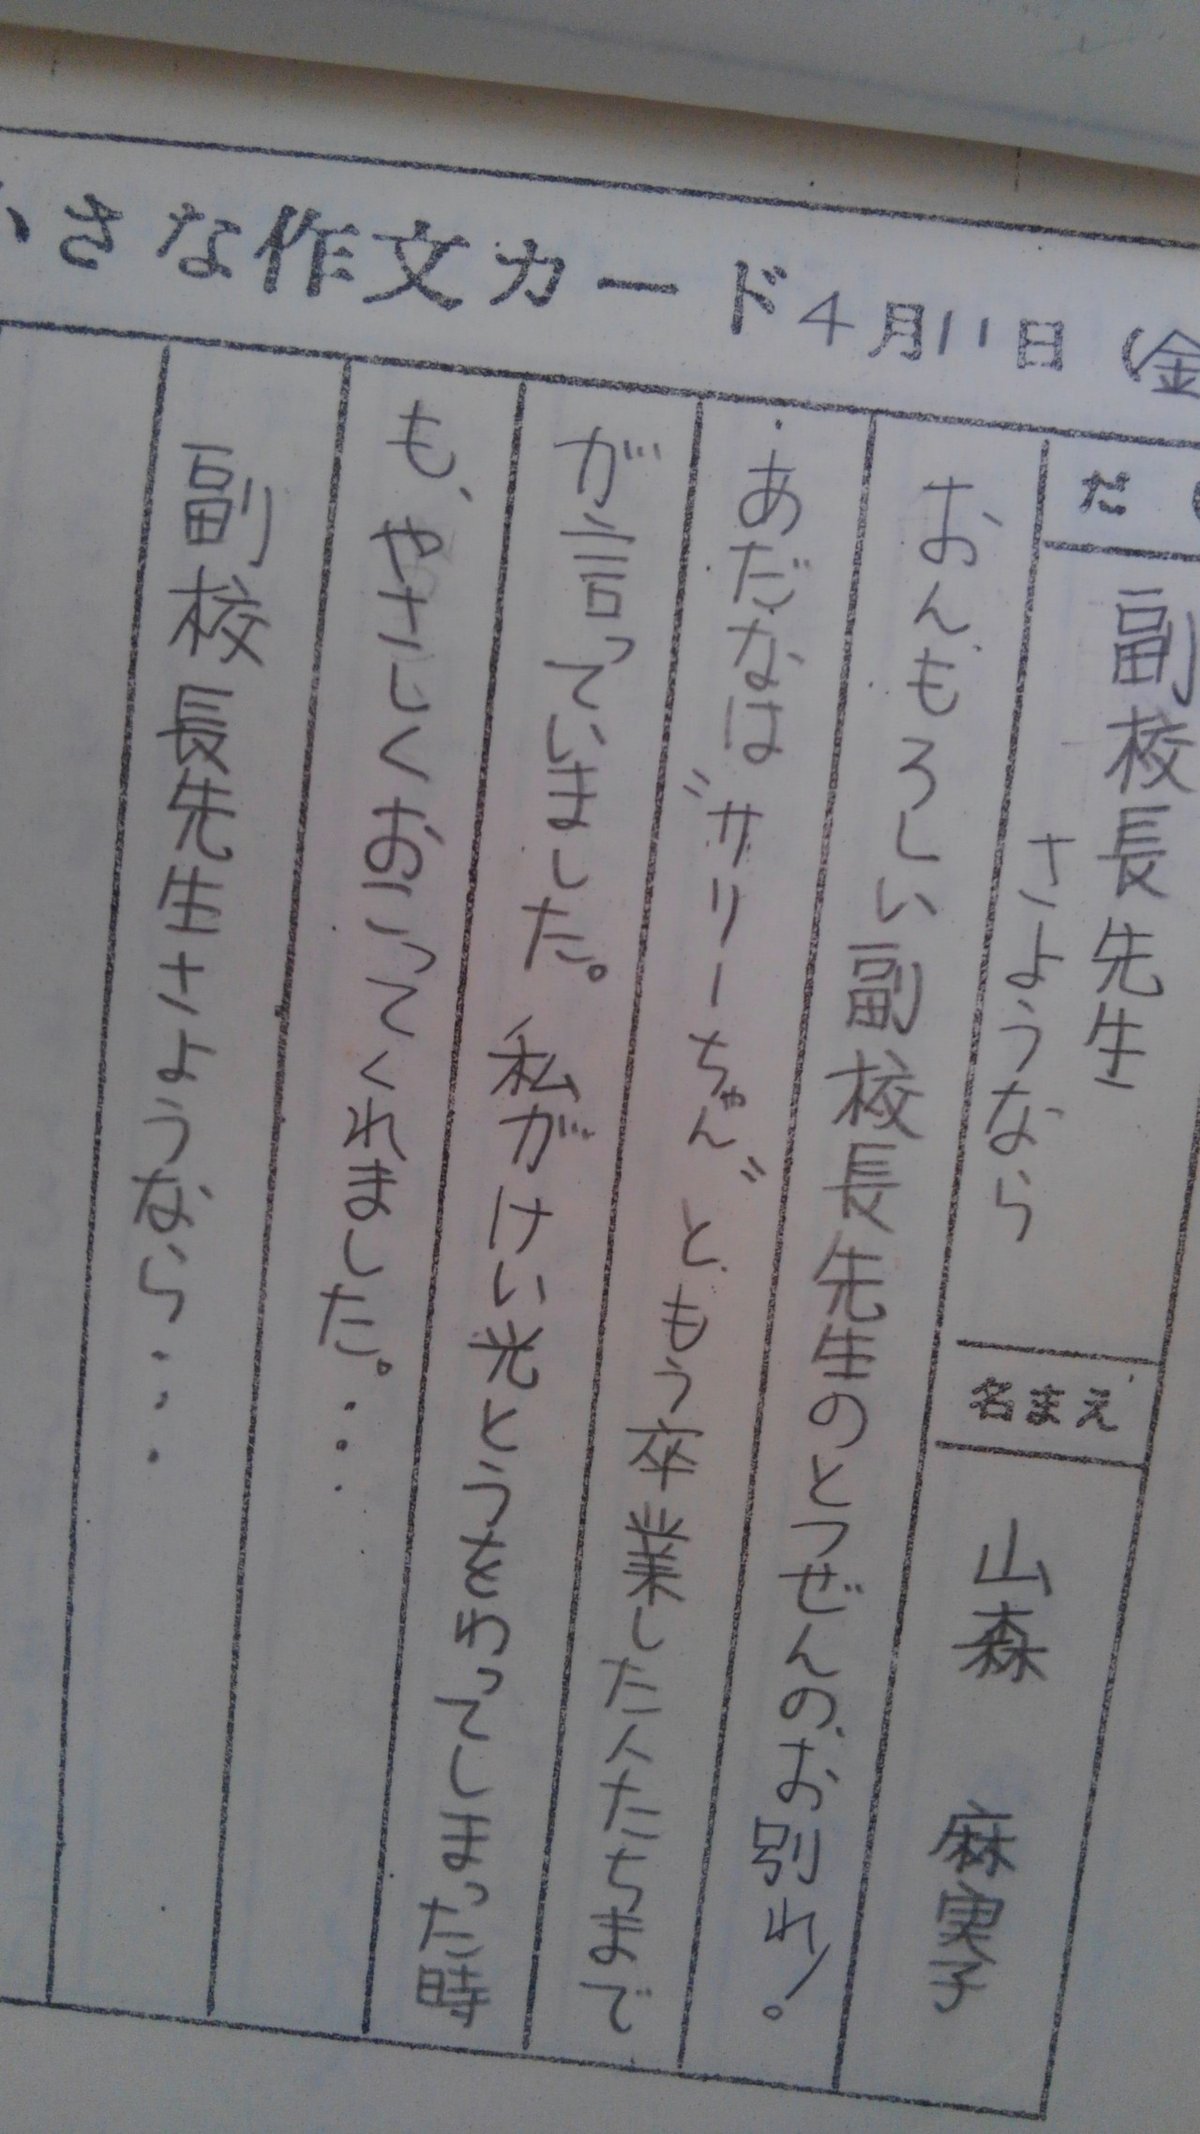 小さな作文カード 4月11日(金
だ
副校長先生
さようなら
名まえ
山森 麻実子
おんもろしい副校長先生のとつぜんの、お別れ!。
あだなは〝サリーちゃん〟と、もう卒業した人たちまで
が言っていました。私がけい光とうをわってしまった時
も、やさしくおこってくれました。...
副校長先生さようなら...